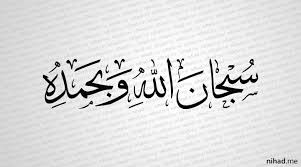 سُبْحَانَ اللهِ وَبِحَمْدِهِ
nihad.me